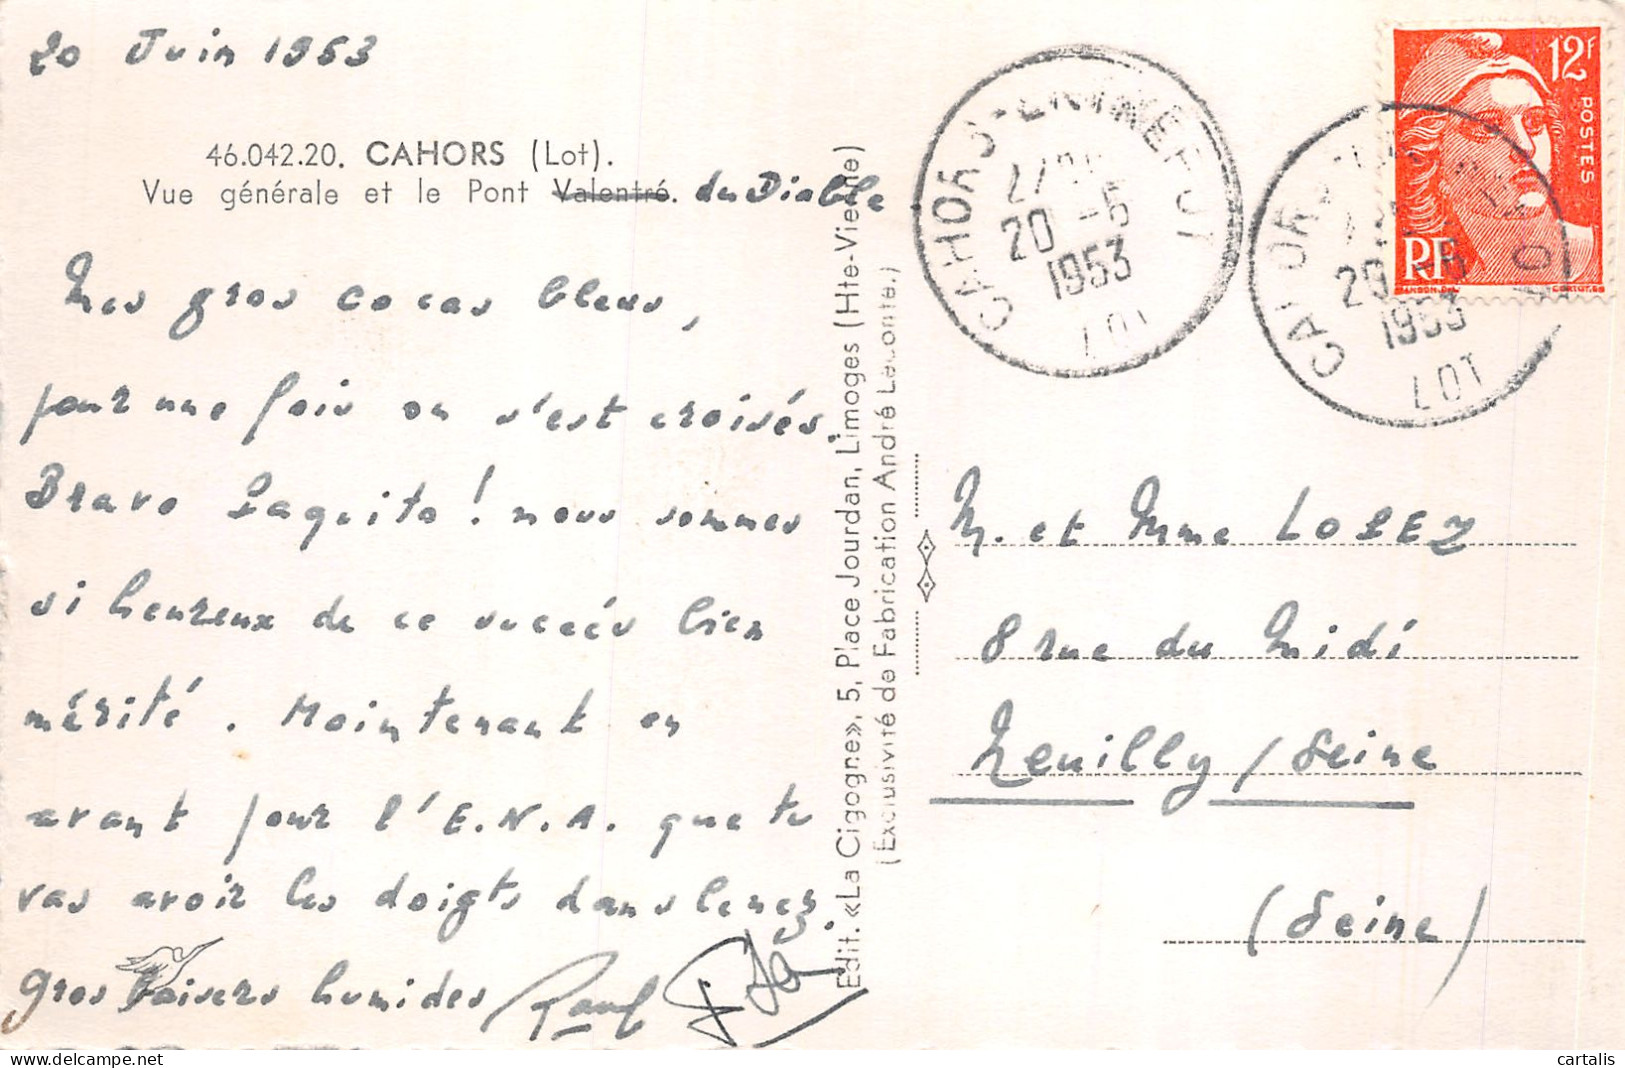 20 Juin 1953
46.042.20. CAHORS (Lot).
Vue générale et le Pont Valentré. du Diable
Mes gros cocos bleus,
pour une fois on s'est croisés.
Bravo Paquito ! nous sommes
si heureux de ce succès bien
mérité. Maintenant en
avant pour l'E.N.A. que tu
vas avoir les doigts dans le nez.
gros baisers humides
Edit. «La Cigogne», 5, Place Jourdan, Limoges (Hte-Vienne)
(Exclusivité de Fabrication André Leconte.)
CAHORS-ENTREPOT
20 -6
1953
LOT
12F
POSTES
RF
20 -6
1953
LOT
M. et Mme LOPEZ
8 rue du Midi
Neuilly / Seine
(Seine)
cartalis